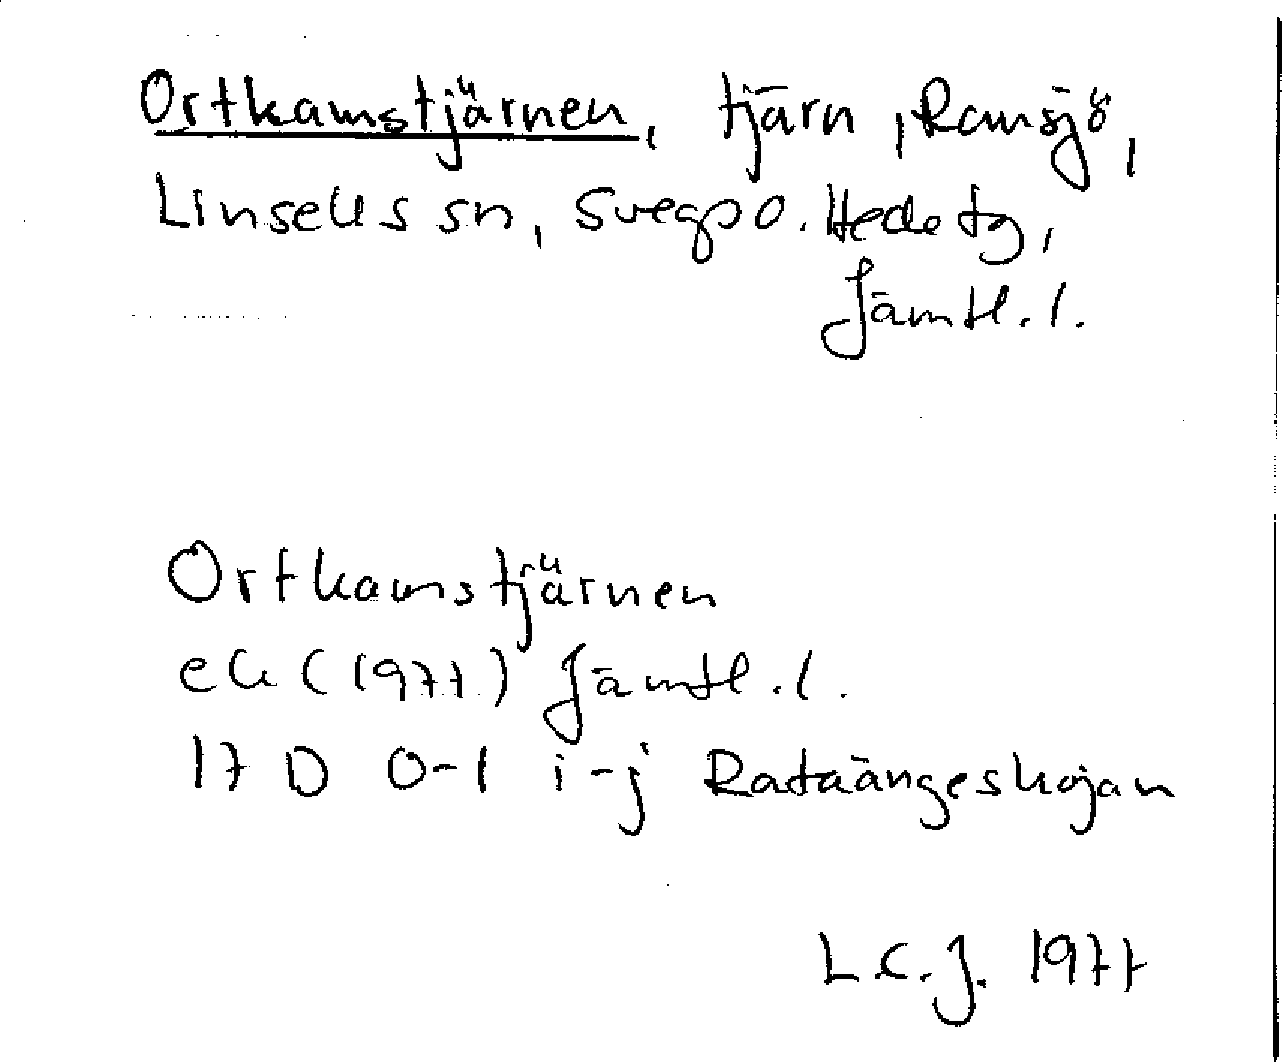 Ortkamstjärnen, tjärn, Ramsjö,
Linsells sn, Svegs o. Hede tg,
Jämtl. l.
Ortkamstjärnen
ek (1977) Jämtl. l.
17 D 0-1 i-j Rataängeskojan
L.C.J. 1977